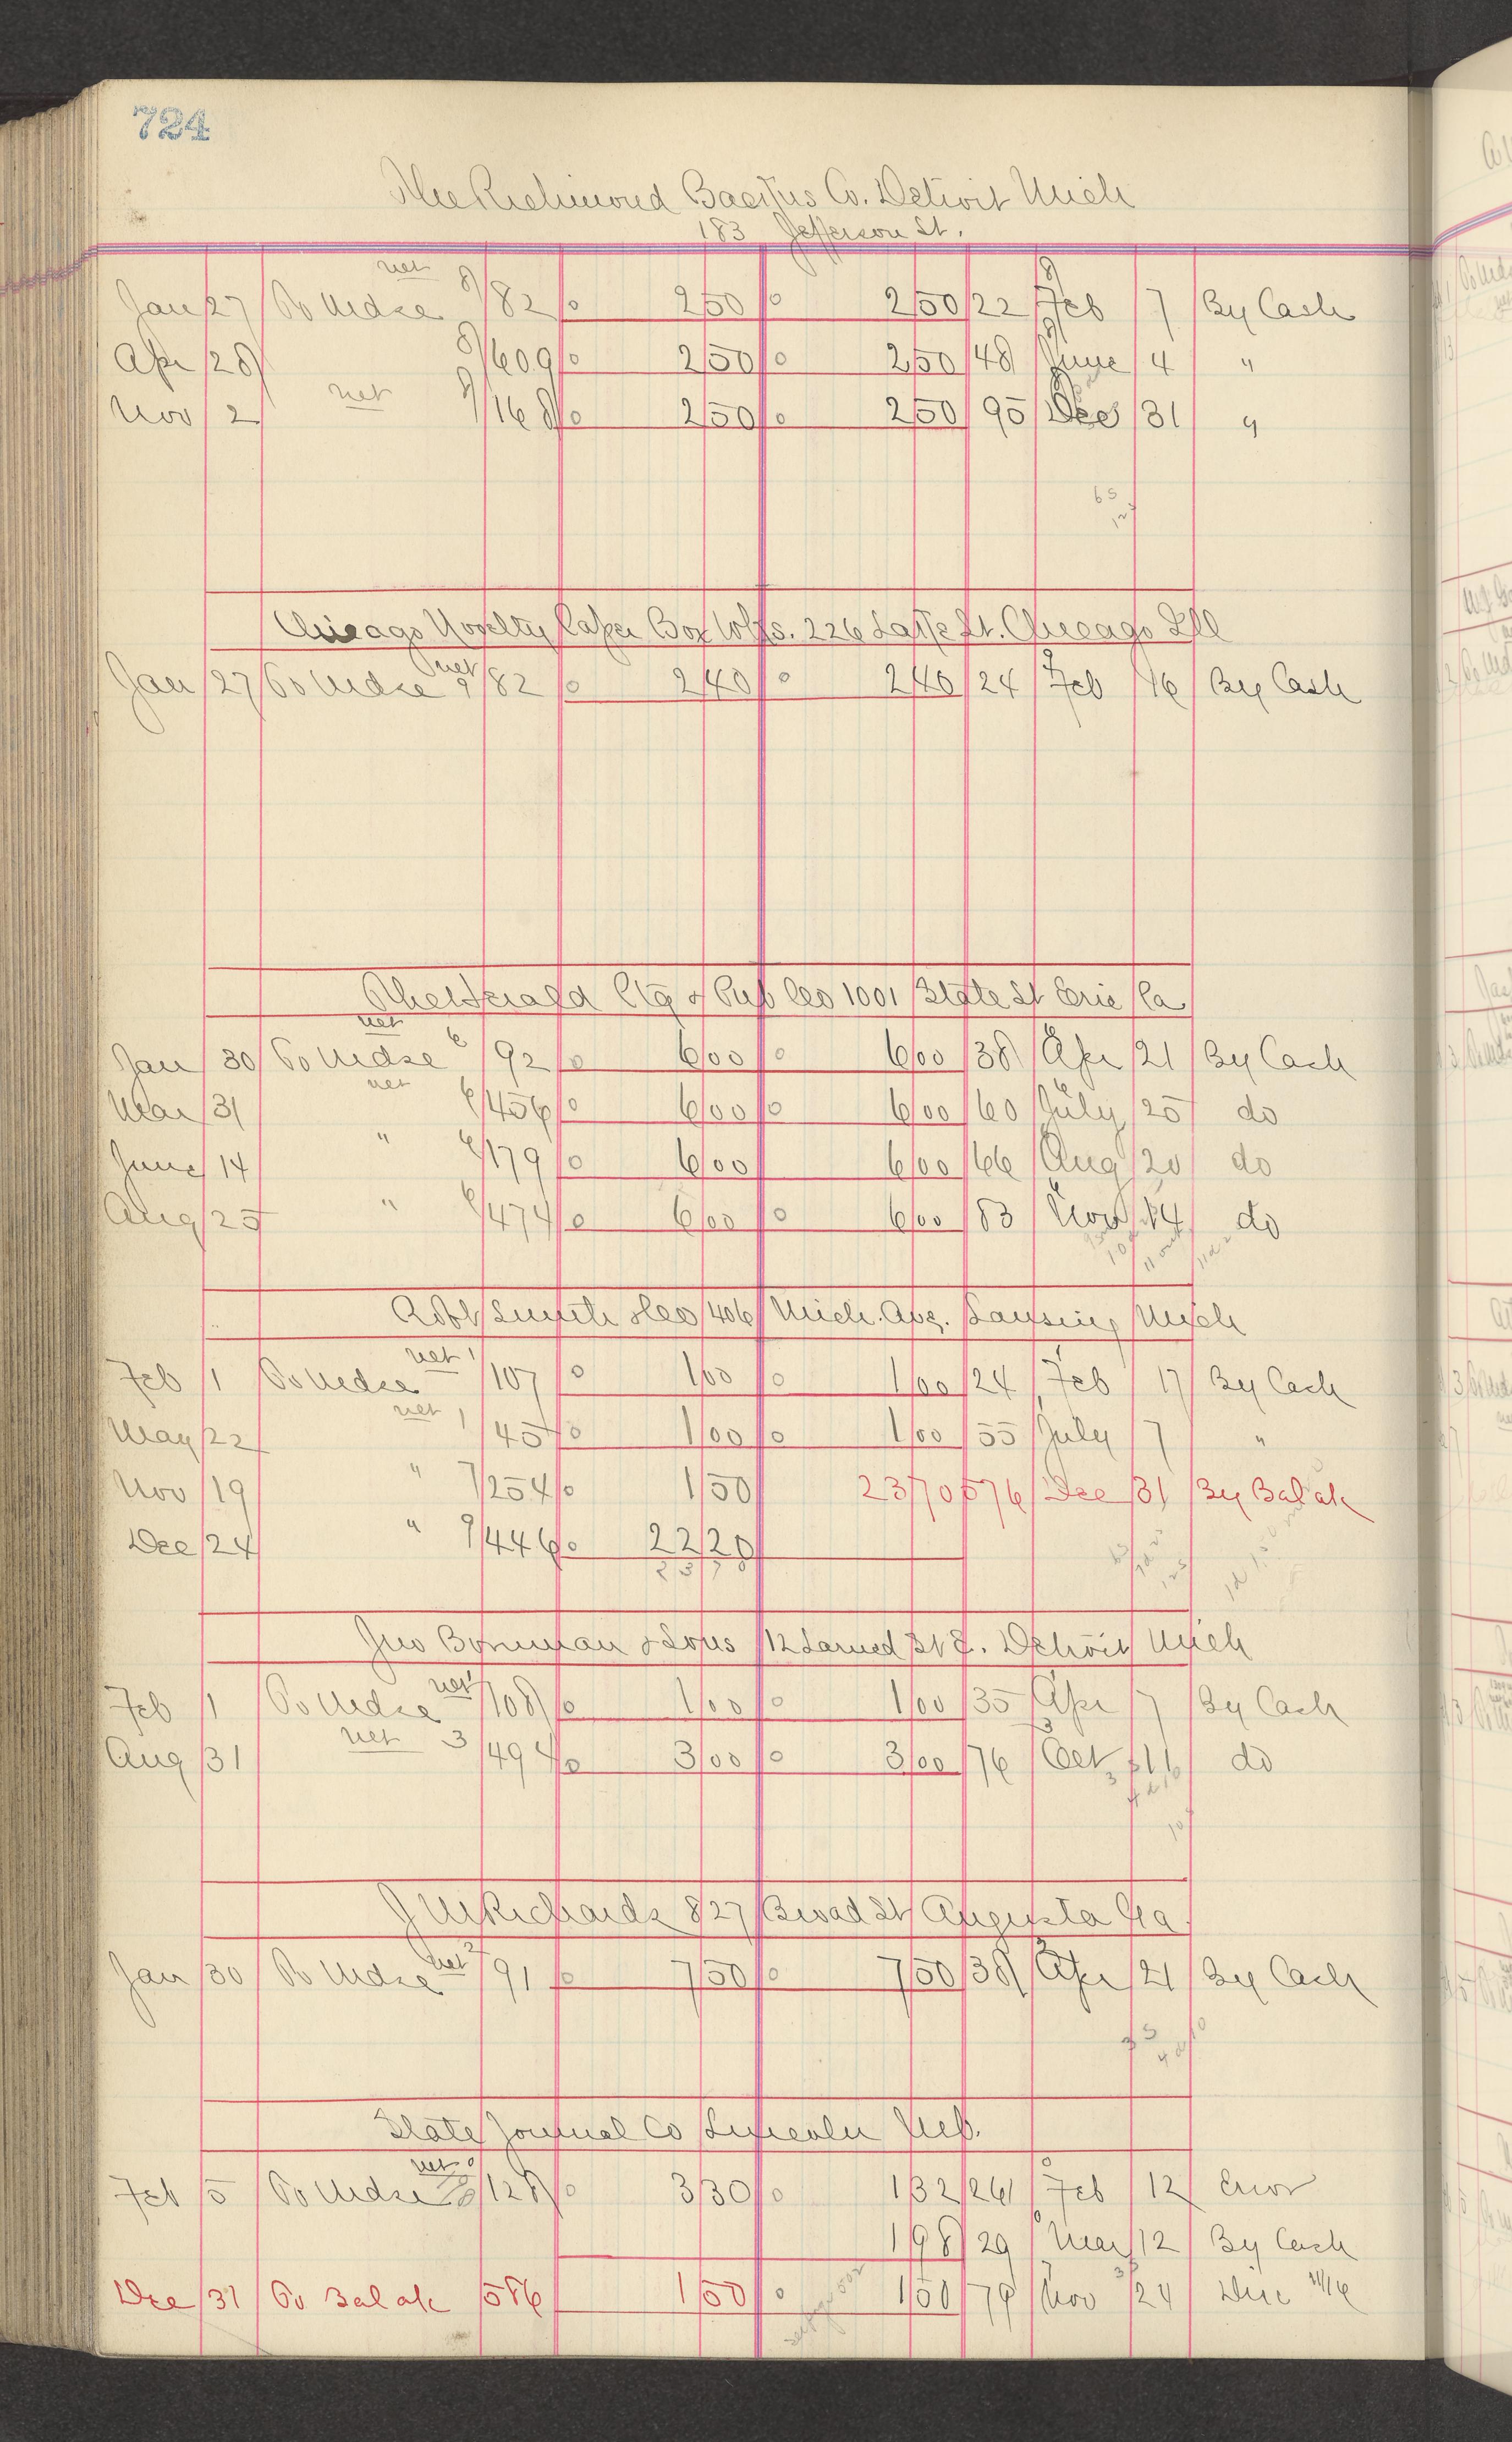 724
The Richmond Co. Detroit Mich
183 Jefferson St.
net
Jan 27 To Mdse 8/82 0 2 50 0 2 50 22 Feb 7 By Cash
Apr 28 8/609 0 2 50 0 2 50 48 June 4 "
net
Nov 2 8/168 0 2 50 0 2 50 95 Dec 31 "
65
Chicago Novelty Paper Box Wks. 226 St. Chicago Ill
net
Jan 27 To Mdse 9/82 0 2 40 0 2 40 24 Feb 16 By Cash
The Herald Ptg & Pub Co 1001 State St Erie Pa
net
Jan 30 To Mdse 6/92 0 6 00 0 6 00 38 Apr 21 By Cash
net
Mar 31 6/456 0 6 00 0 6 00 60 July 25 do
June 14 " 6/179 0 6 00 6 00 66 Aug 20 do
Aug 25 " 6/474 0 6 00 0 6 00 83 Nov 14 do
Robt Smith & Co 406 Mich. Ave. Lansing Mich
net
Feb 1 To Mdse 1/107 0 1 00 0 1 00 24 Feb 17 By Cash
net
May 22 1/45 0 1 00 0 1 00 55 July 7 "
Nov 19 " 7/254 0 1 50 23 70 576 Dec 31 By Bal
Dec 24 " 9/446 0 22 20
23 70
Jno Bornman & Sons 12 Larned St E. Detroit Mich
net
Feb 1 To Mdse 1/108 0 1 00 0 1 00 35 Apr 7 By Cash
net
Aug 31 3/494 0 3 00 0 3 00 76 Oct 11 do
J M Richards 827 Broad St Augusta Ga
net
Jan 30 To Mdse 7/91 0 7 50 0 7 50 38 Apr 21 By Cash
State Journal Co Lincoln Neb.
net
Feb 5 To Mdse /128 0 3 30 0 1 32 26 Feb 12 Error
1 98 29 Mar 12 By Cash
Dec 31 To Bal 586 1 50 0 1 50 79 Nov 24